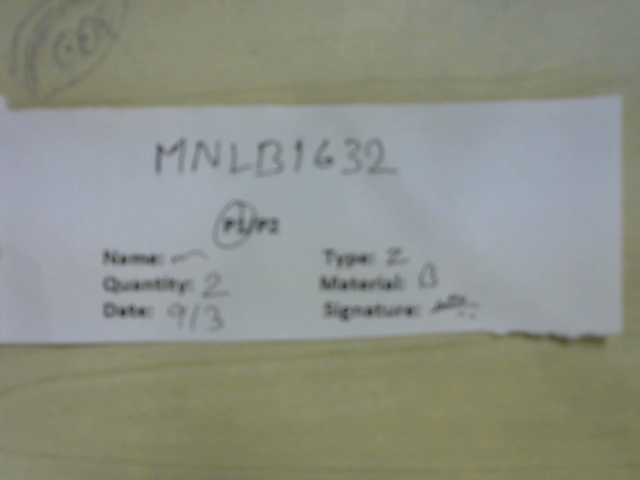 MNLB1632
P1/P2
Name: ~
Quantity: 2
Date: 9/3
Type: Z
Material: B
Signature: